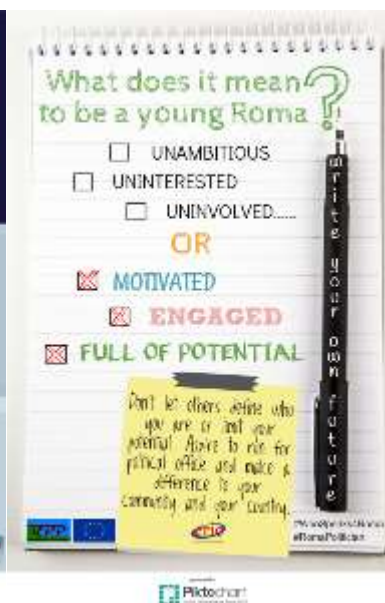 What does it mean
to be a young Roma ?
UNAMBITIOUS
UNINTERESTED
UNINVOLVED.....
OR
MOTIVATED
ENGAGED
FULL OF POTENTIAL
write your own future
Don't let others define who
you are or limit your
potential. Aspire to run for
political office and make a
difference in your
community and your country.
#RomaPolitician
Piktochart